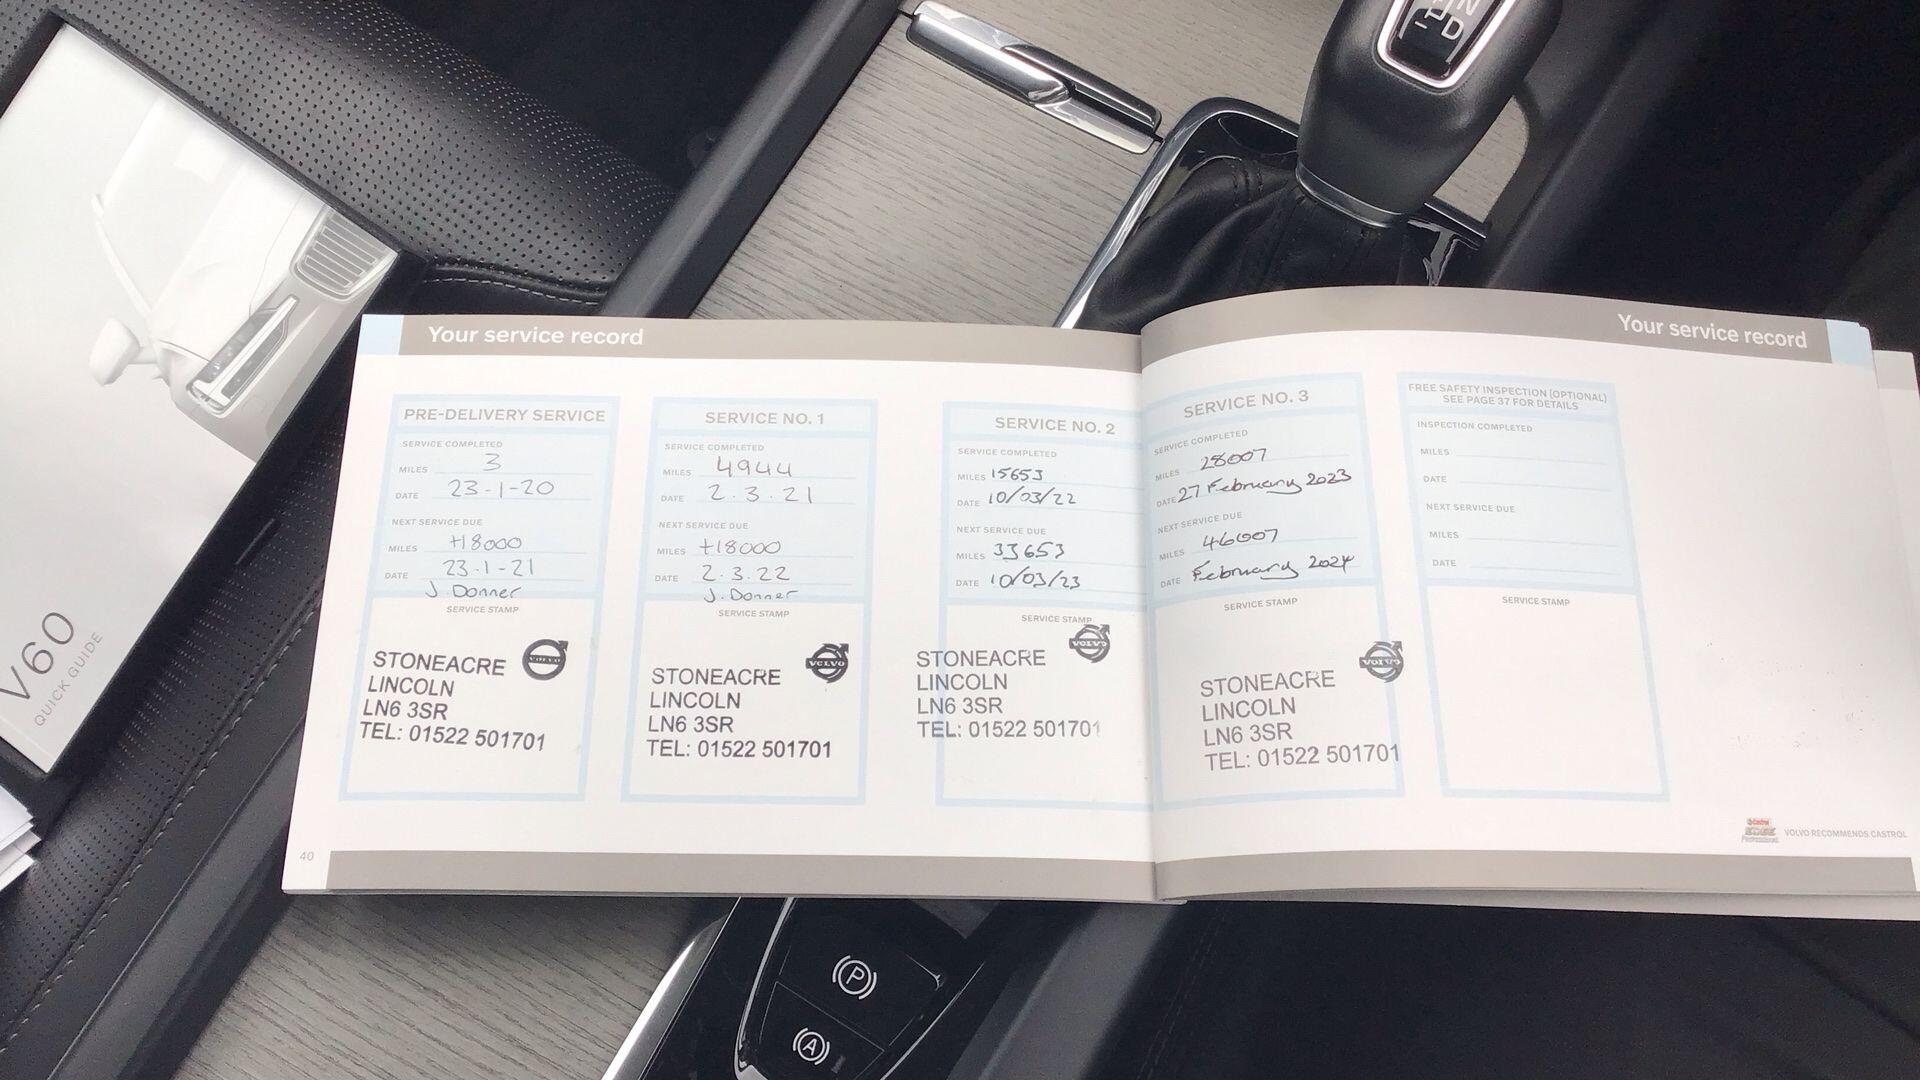 N
D
V60
QUICK GUIDE
Your service record
PRE-DELIVERY SERVICE
SERVICE COMPLETED
MILES 3
DATE 23-1-20
NEXT SERVICE DUE
MILES +18000
DATE 23-1-21
J. Donner
SERVICE STAMP
VOLVO
STONEACRE
LINCOLN
LN6 3SR
TEL: 01522 501701
SERVICE NO. 1
SERVICE COMPLETED
MILES 4944
DATE 2.3.21
NEXT SERVICE DUE
MILES +18000
DATE 2.3.22
J. Donner
SERVICE STAMP
VOLVO
STONEACRE
LINCOLN
LN6 3SR
TEL: 01522 501701
SERVICE NO. 2
SERVICE COMPLETED
MILES 15653
DATE 10/03/22
NEXT SERVICE DUE
MILES 33653
DATE 10/03/23
SERVICE STAMP
VOLVO
STONEACRE
LINCOLN
LN6 3SR
TEL: 01522 501701
40
Your service record
SERVICE NO. 3
SERVICE COMPLETED
MILES 28007
DATE 27 February 2023
NEXT SERVICE DUE
MILES 46007
DATE February 2024
SERVICE STAMP
VOLVO
STONEACRE
LINCOLN
LN6 3SR
TEL: 01522 501701
FREE SAFETY INSPECTION (OPTIONAL)
SEE PAGE 37 FOR DETAILS
INSPECTION COMPLETED
MILES
DATE
NEXT SERVICE DUE
MILES
DATE
SERVICE STAMP
Castrol
EDGE
Professional
VOLVO RECOMMENDS CASTROL
P
A